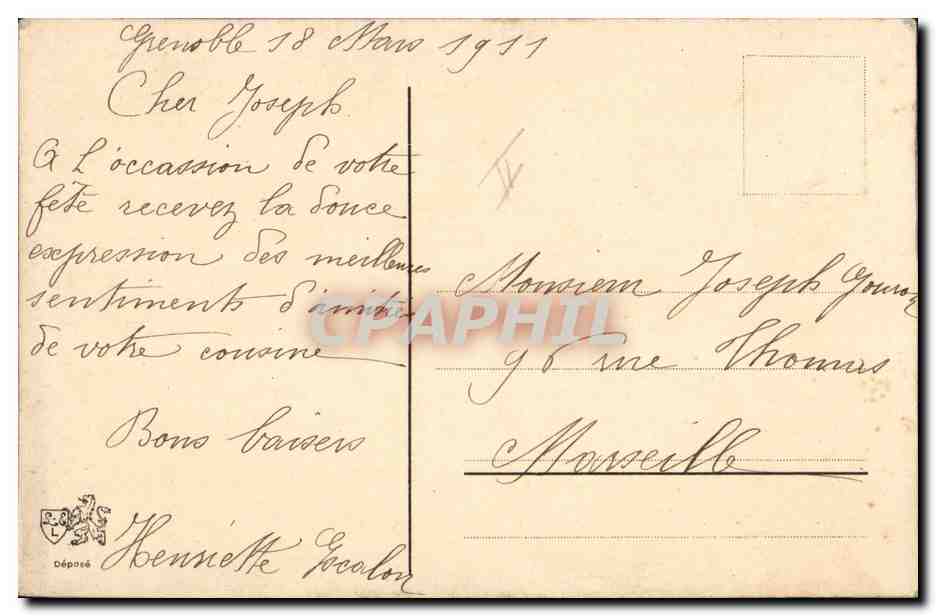 Grenoble 18 Mars 1911
Cher Joseph
A L'occassion de votre
fête recevez la douce
expression des meilleures
sentiments d'amitiés
de votre cousine
Bons baisers
Henriette Escalon
L
Déposé
Monsieur Joseph
96 rue Thomas
Marseille
CPAPHIL